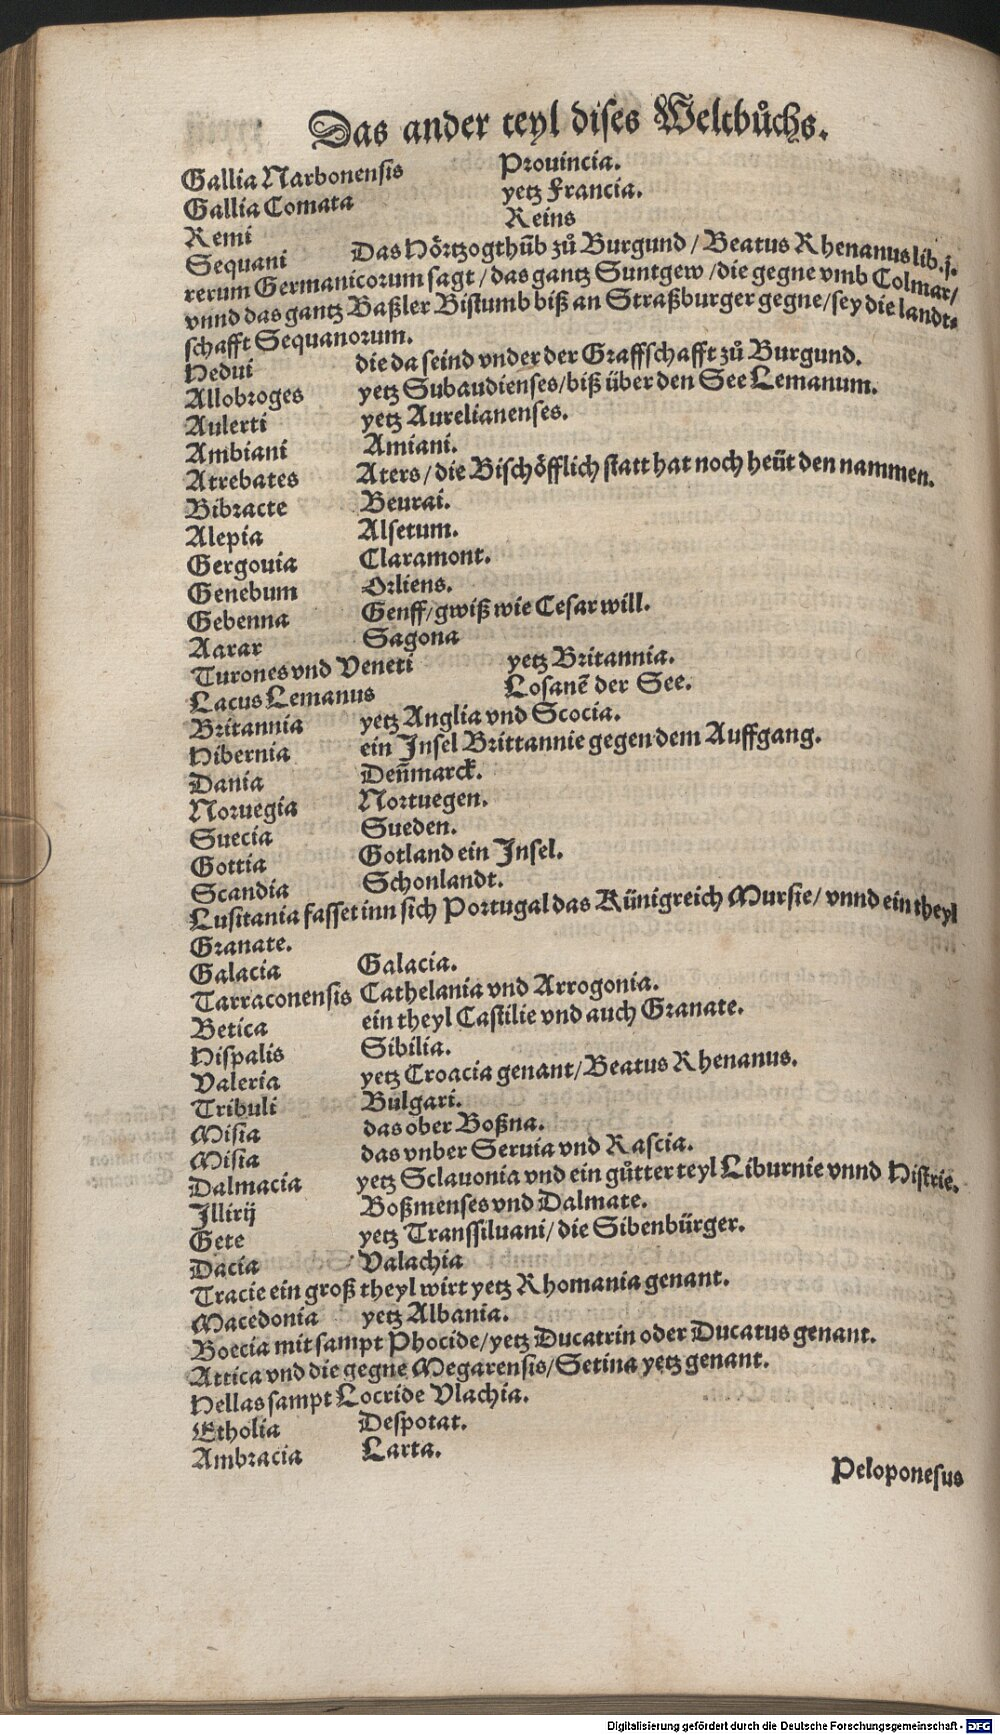 Das ander teyl dises Weltbůchs.
Gallia Narbonensis Prouincia.
Gallia Comata yetz Francia.
Remi Reins
Sequani Das Hörtzogthūb zů Burgund / Beatus Rhenanus lib. j.
rerum Germanicorum sagt / das gantz Suntgew / die gegne vmb Colmar /
vnnd das gantz Baßler Bistumb biß an Straßburger gegne / sey die landt-
schafft Sequanorum.
Hedui die da seind vnder der Graffschafft zů Burgund.
Allobroges yetz Subaudienses / biß über den See Lemanum.
Aulerti yetz Aurelianenses.
Ambiani Amiani.
Atrebates Aters / die Bischöfflich statt hat noch heüt den nammen.
Bibracte Beurai.
Alepia Alsetum.
Gergouia Claramont.
Genebum Orliens.
Gebenna Genff / gwiß wie Cesar will.
Aarar Sagona
Turones vnd Veneti yetz Britannia.
Lacus Lemanus Losanē der See.
Britannia yetz Anglia vnd Scocia.
Hibernia ein Insel Brittannie gegen dem Auffgang.
Dania Deñmarck.
Noruegia Nortuegen.
Suecia Sueden.
Gottia Gotland ein Insel.
Scandia Schonlandt.
Lusitania fasset inn sich Portugal das Künigreich Mursie / vnnd ein theyl
Granate.
Galacia Galacia.
Tarraconensis Cathelania vnd Arrogonia.
Betica ein theyl Castilie vnd auch Granate.
Hispalis Sibilia.
Valeria yetz Croacia genant / Beatus Rhenanus.
Tribuli Bulgari.
Misia das ober Boßna.
Misia das vnber Seruia vnd Rascia.
Dalmacia yetz Sclauonia vnd ein gůtter teyl Liburnie vnnd Histrie.
Illirij Boßmenses vnd Dalmate.
Gete yetz Transsiluani / die Sibenbürger.
Dacia Valachia
Tracie ein groß theyl wirt yetz Rhomania genant.
Macedonia yetz Albania.
Boecia mit sampt Phocide / yetz Ducatrin oder Ducatus genant.
Attica vnd die gegne Megarensis / Setina yetz genant.
Hellas sampt Locride Vlachia.
Etholia Despotat.
Ambracia Larta.
Peloponesus
Digitalisierung gefördert durch die Deutsche Forschungsgemeinschaft - DFG